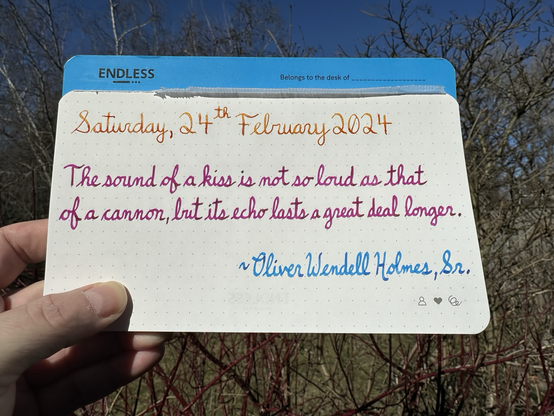 ENDLESS
Belongs to the desk of
Saturday, 24th February 2024
The sound of a kiss is not so loud as that
of a cannon, but its echo lasts a great deal longer.
~Oliver Wendell Holmes, Sr.